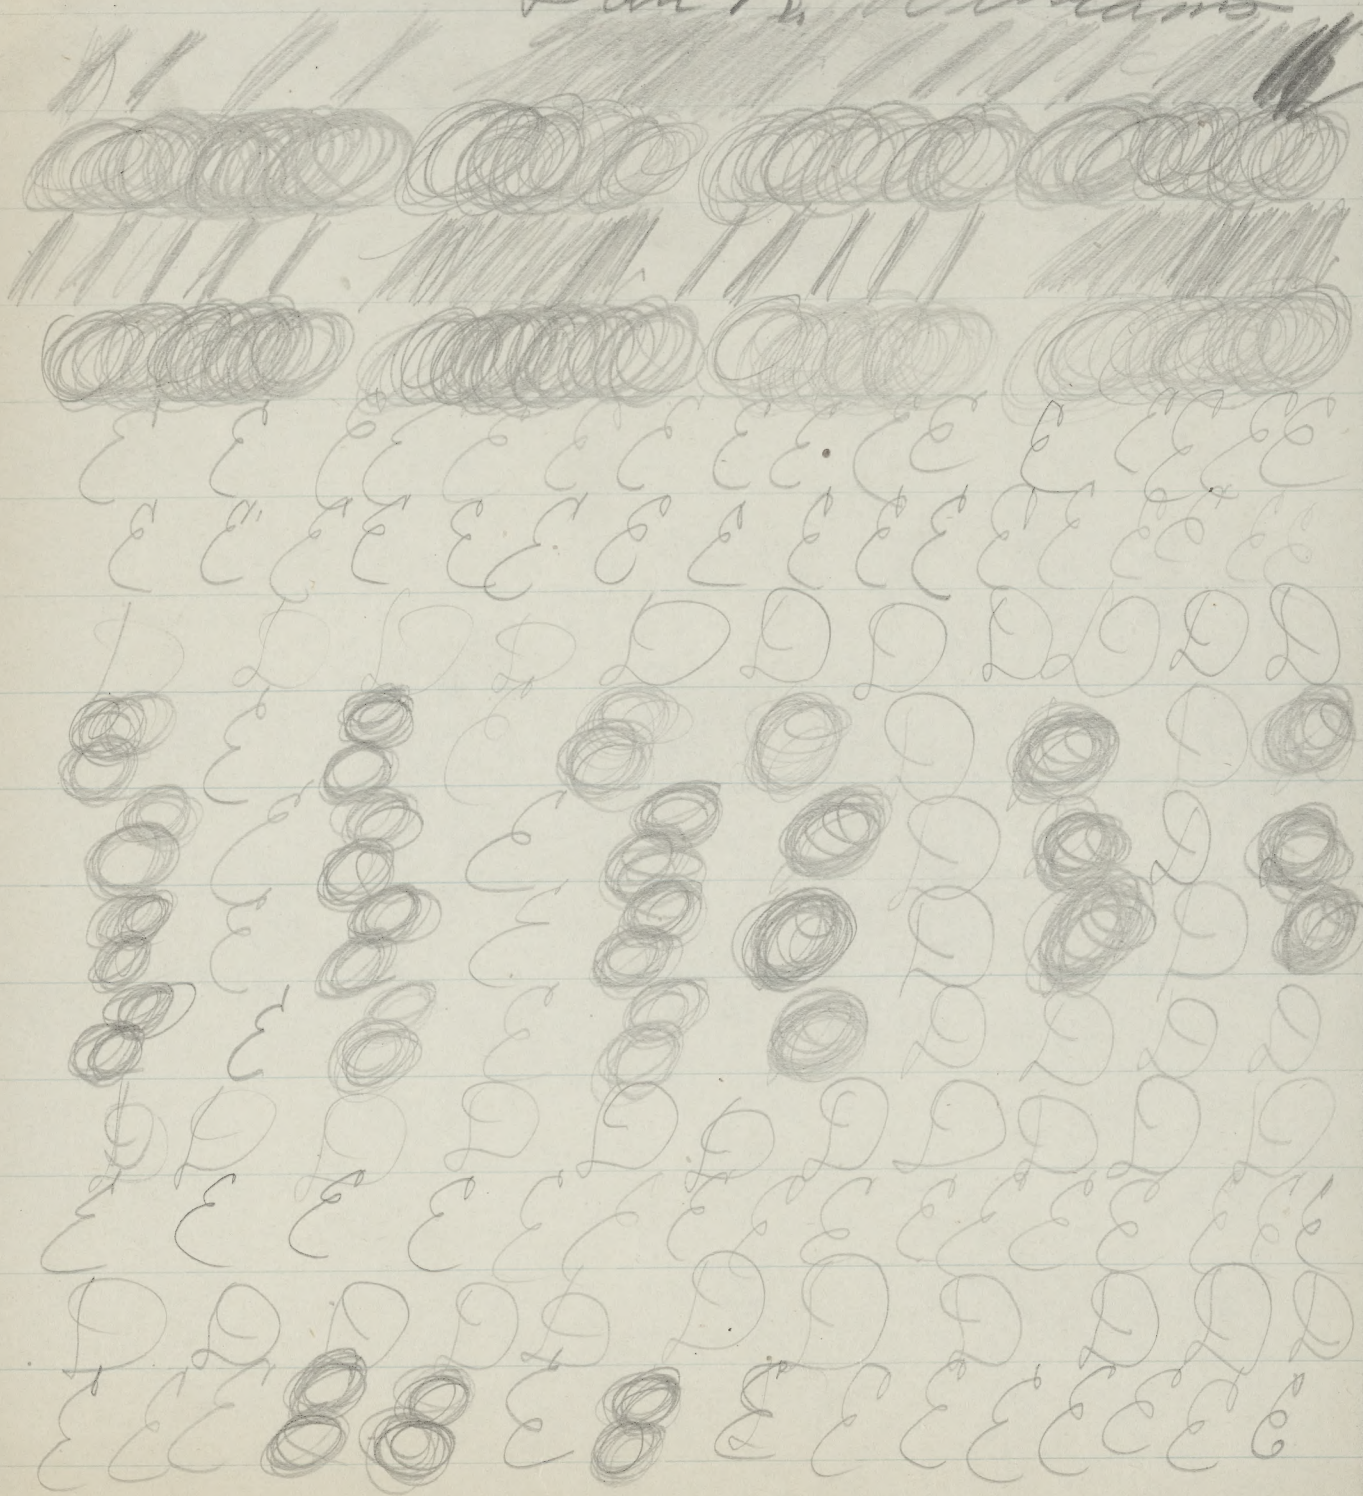 E E E E E E E E E E E E E E E E
E E E E E E E E E E E E E E E E E
D D D D D D D D D D D
E E D D
E E D D
E E D D
E E D D D D
D D D D D D D D D D D
E E E E E E E E E E E E E E E E
D D D D D D D D D D D
E E E E E E E E E E E E